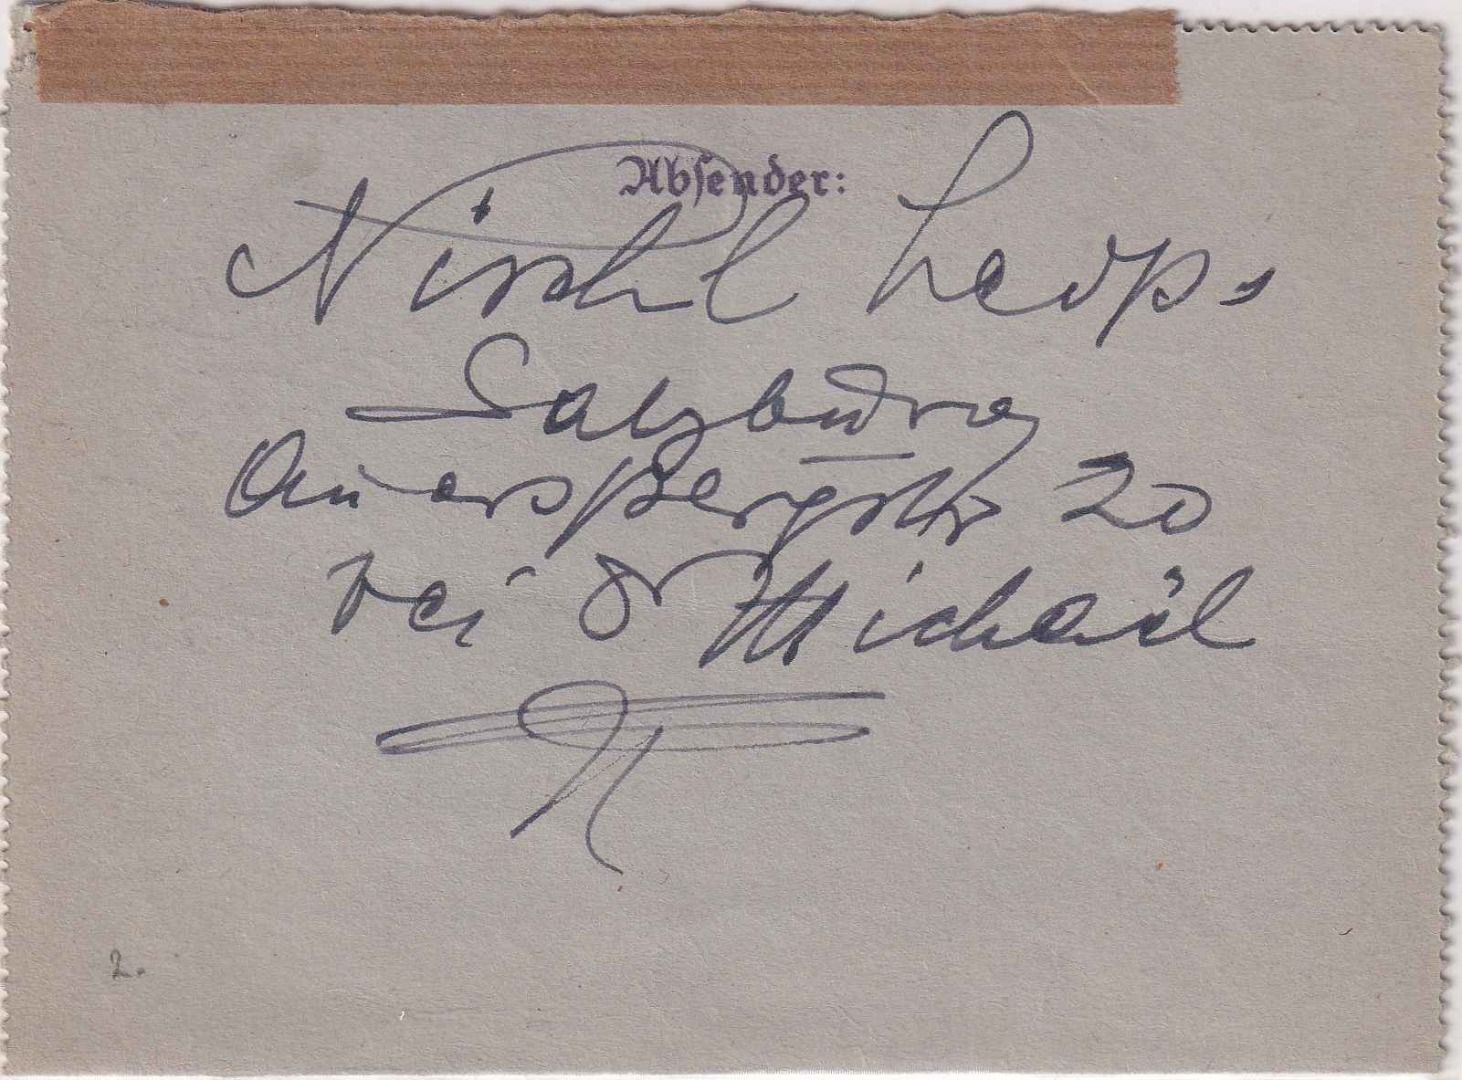 Absender:
Nischl Leop.
Salzburg
Auerspergstr 20
bei Dr Michael
2.